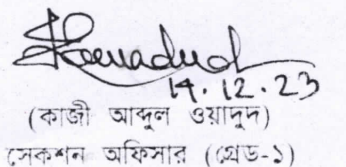 14.12.23
(কাজী আব্দুল ওয়াদুদ)
সেকশন অফিসার (গ্রেড-১)